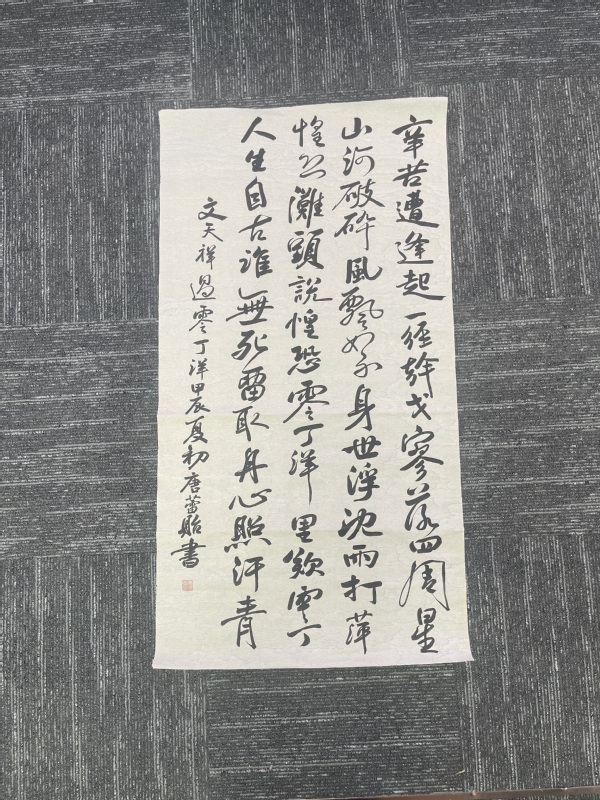 辛苦遭逢起一經幹戈寥落四周星
山河破碎風飄絮身世浮沈雨打萍
惶恐灘頭說惶恐零丁洋里歎零丁
人生自古誰無死留取丹心照汗青
文天祥過零丁洋甲辰夏初唐蕾貽書